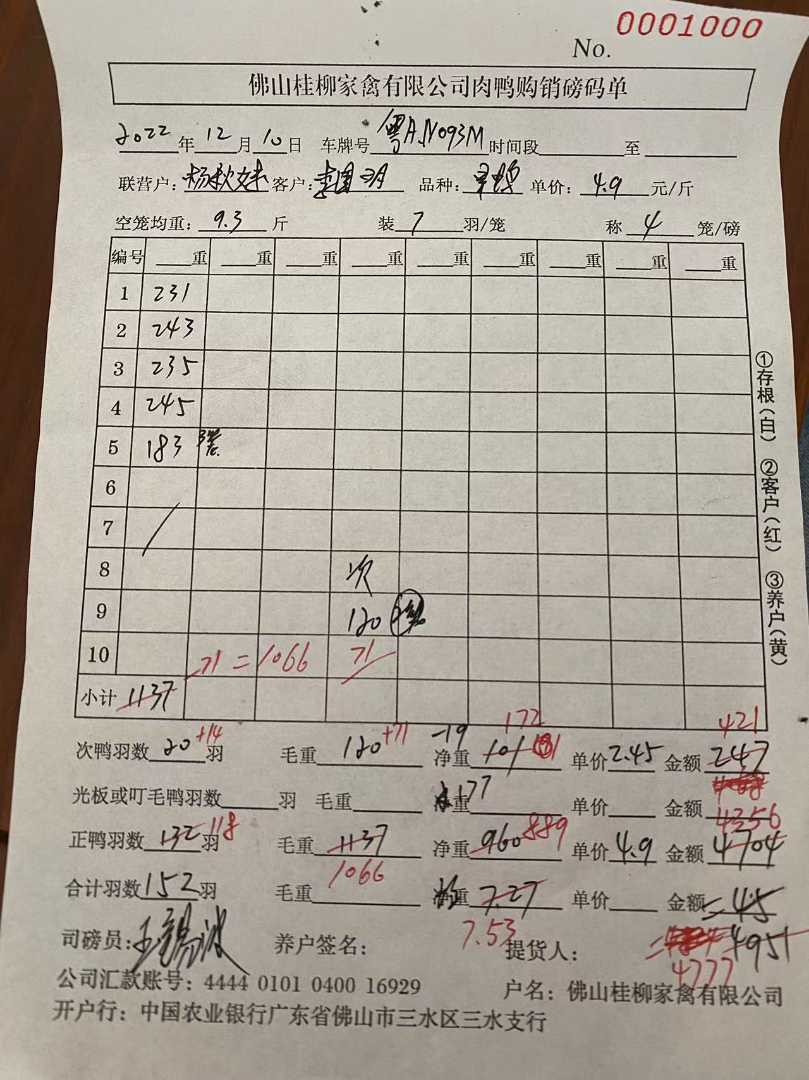 No. 0001000
佛山桂柳家禽有限公司肉鸭购销磅码单
2022年 12月 10日 车牌号 粤A.N093M 时间段 至
联营户: 客户: 品种: 单价: 4.9 元/斤
空笼均重: 9.3 斤 装 7 羽/笼 称 4 笼/磅
编号 重 重 重 重 重 重 重 重 重
1 231
2 243
3 235
4 245
5 183
6
7
8 次
9 120
10 71 = 1066 71
小计 1137
①存根(白) ②客户(红) ③养户(黄)
次鸭羽数 20 +14 羽 毛重 120 +71 -19 净重 101 172 单价 2.45 金额 247 421
光板或叮毛鸭羽数 羽 毛重 重 177 单价 金额
正鸭羽数 132 118 羽 毛重 1137 净重 960 889 单价 4.9 金额 4704 4356
合计羽数 152 羽 毛重 1066 重 7.27 单价 金额 -45
司磅员: 养户签名: 7.53 提货人: =4951
4777
公司汇款账号: 4444 0101 0400 16929 户名: 佛山桂柳家禽有限公司
开户行: 中国农业银行广东省佛山市三水区三水支行